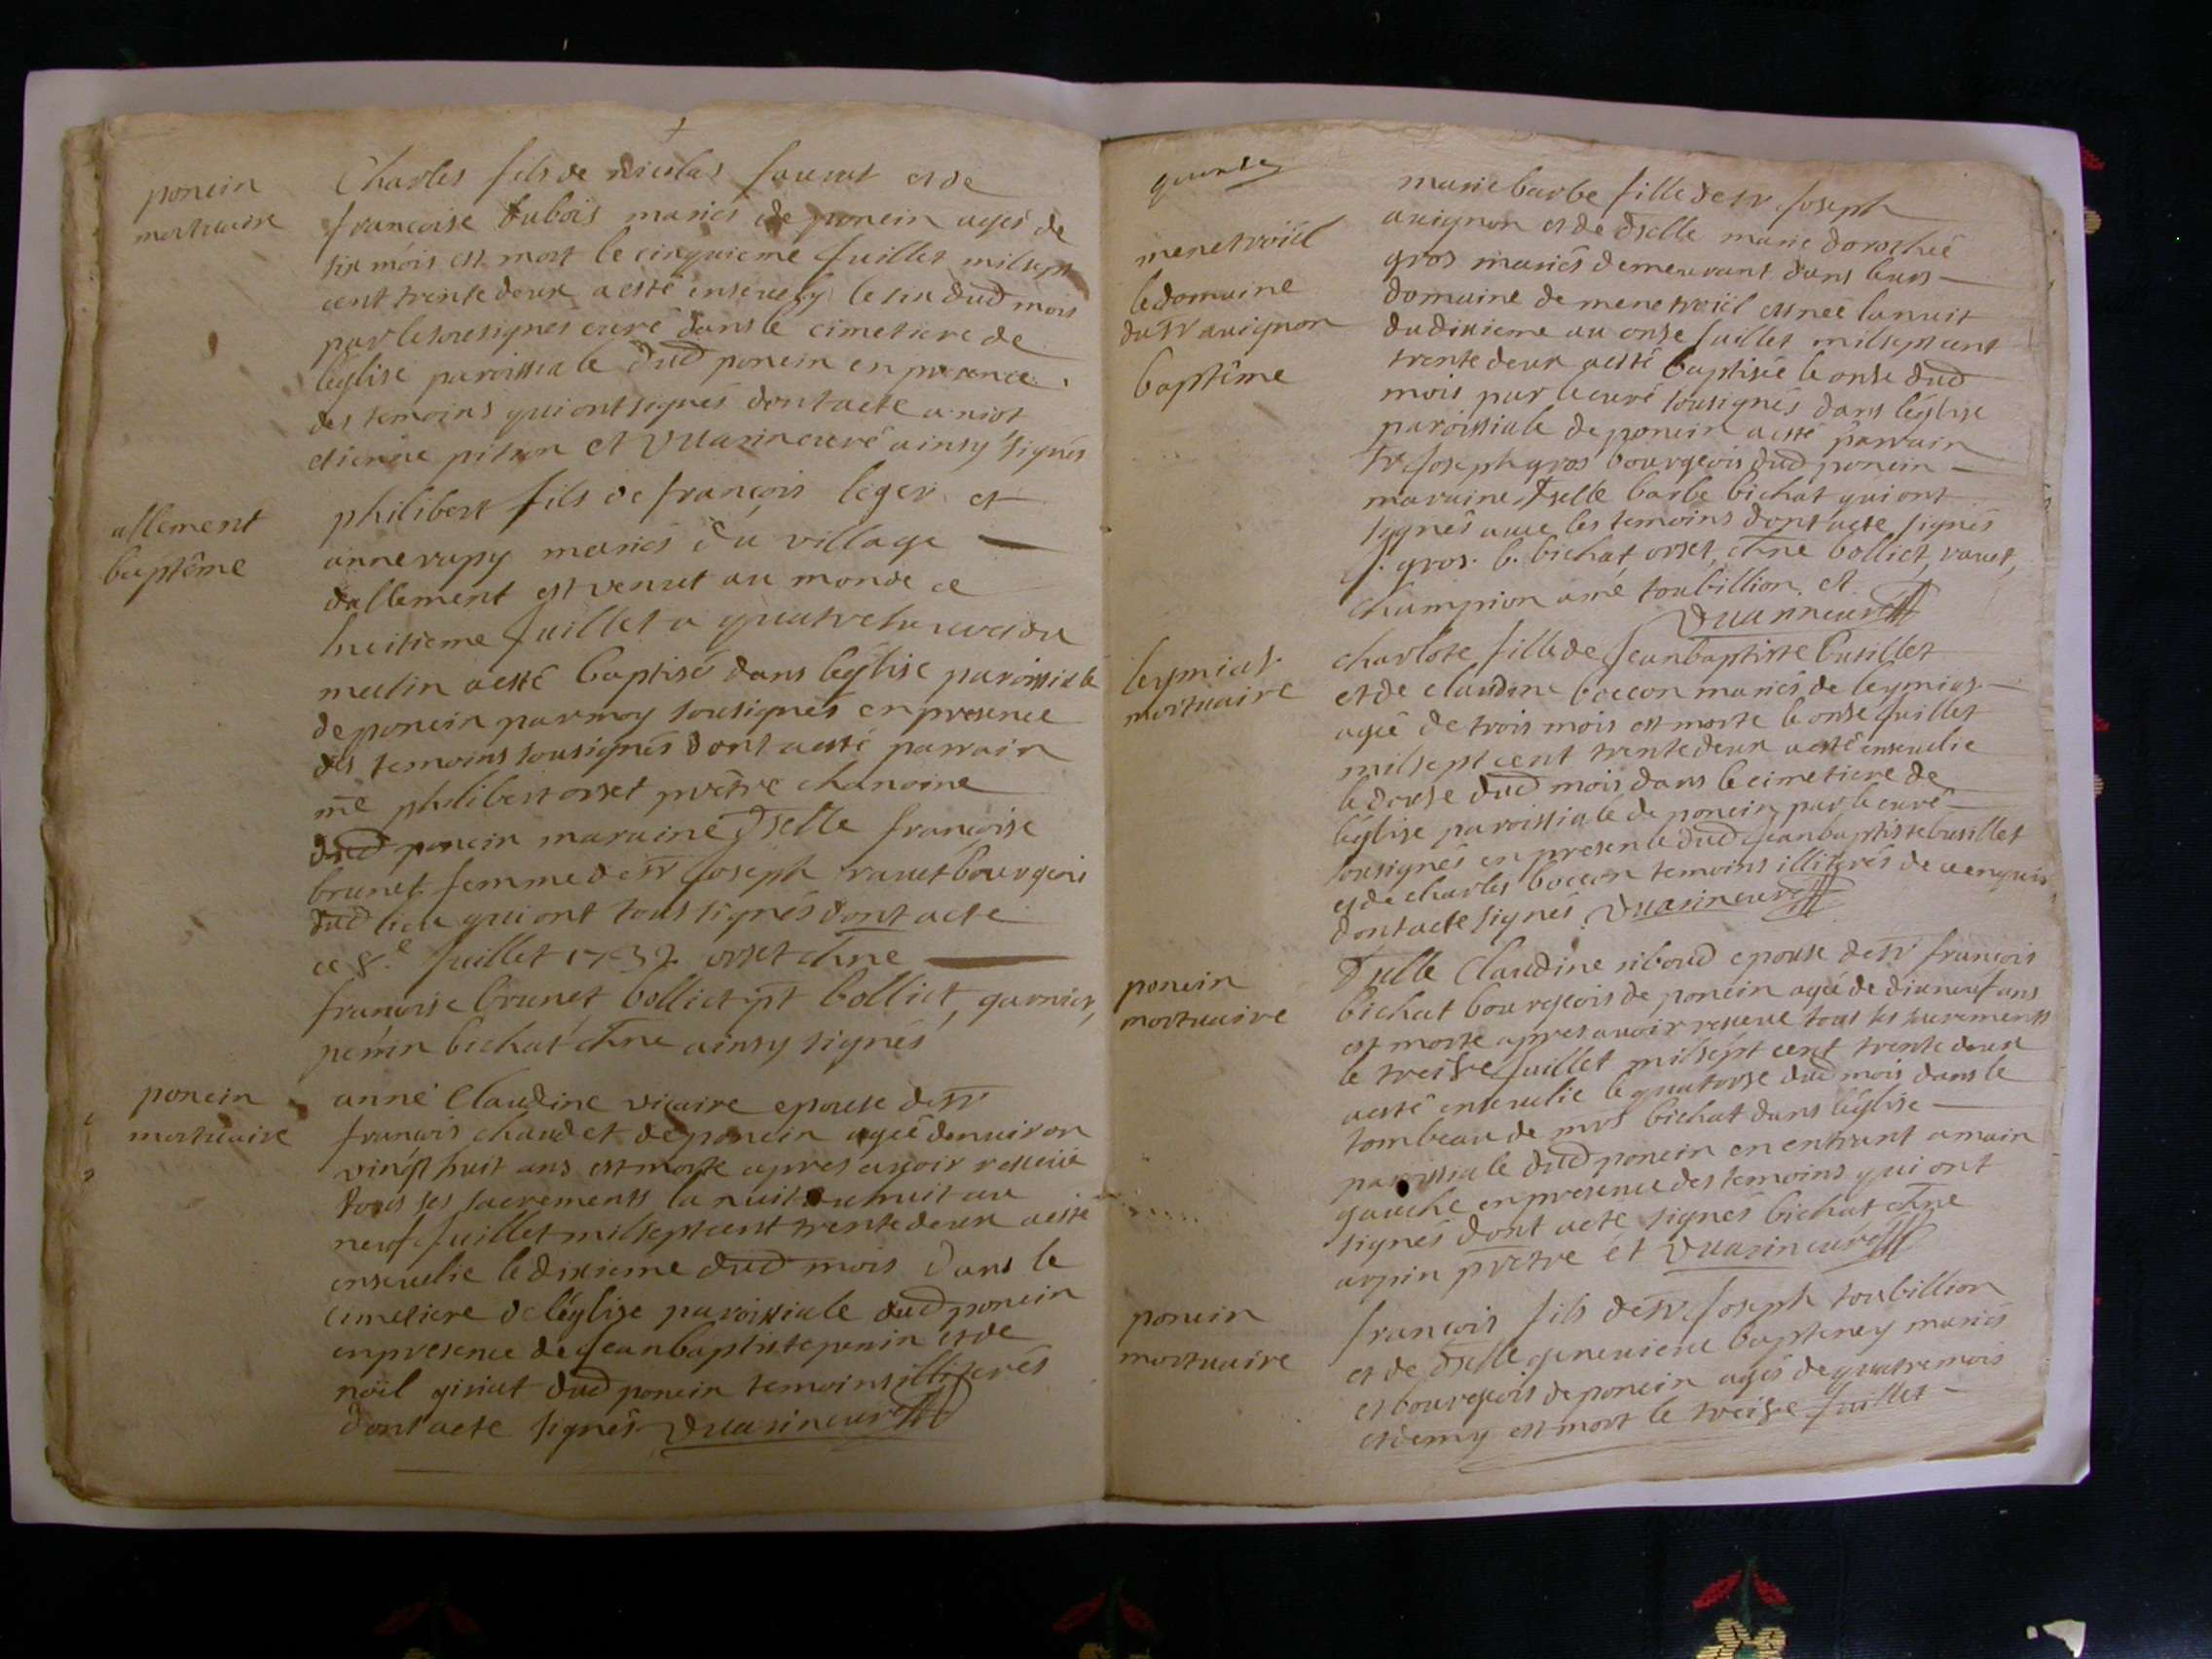 ponein
mortuaire
Charles fils de nicolas sauvat et de
francoise dubois mariés de ponein agés de
six mois est mort le cinquieme Juillet milsept
cent trente deux a esté ensevely le six dud mois
par le sousignés curé dans le cimetiere de
léglise paroissiale dud ponein en presence
des temoins qui ont signés dont acte a niot
etienne pition et Duarin curé ainsy signés
allement
baptême
philibert fils de françois leger et
anne rapy mariés du village
dallement est venut au monde ce
huitieme Juillet a quatre heures du
matin a esté baptisé dans léglise paroissiale
de ponein par moy sousignés en presence
des temoins sousignés dont a esté parrain
mre philibert orset prêtre chanoine
dud ponein maraine dselle françoise
brunet femme de sr Joseph ravet bourgeois
dud lieu qui ont tous signés dont acte
ce 8.e Juillet 1732 orset chne
francoise brunet bolliet jst bolliet, garnier,
perrin bichat chne ainsy signés
ponein
mortuaire
anne Claudine vicaire epouse de sr
francois chaudet de ponein agée denviron
vingt huit ans est morte apres avoir receüe
tous ses sacrements la nuit du huit au
neuf Juillet milsept cent trente deux a esté
ensevelie le dixieme dud mois dans le
cimetiere de léglise paroissiale dud ponein
en presence de Jean baptiste penin et de
noïl giriat dud ponein temoins illiterés
dont acte signés Duarin curé
quinse
menetroüil
le domaine
du sr avignon
baptême
marie barbe fille de sr Joseph
avignon et de dselle marie dorothée
gros mariés demeurant dans leurs
domaine de menetroüil est née la nuit
du dixieme au onse Juillet milsept cent
trente deux a esté baptisée le onse dud
mois par le curé sousignés dans léglise
paroissiale de ponein a esté parrain
sr Joseph gros bourgeois dud ponein
maraine dselle barbe bichat qui ont
signés avec les temoins dont acte signés
J. gros. b. bichat, orset, chne bolliet, ravet,
champion amé toubillion et
Duarin curé
leymiat
mortuaire
charlote fille de Jean baptiste busillet
et de claudine boccon mariés de leymiat
agée de trois mois est morte le onse Juillet
milsept cent trente deux a esté ensevelie
le douse dud mois dans le cimetiere de
léglise paroissiale de ponein par le curé
sousignés en presence dud Jean baptiste busillet
et de charles boccon temoins illiterés de ce enquis
dont acte signés Duarin curé
ponein
mortuaire
Dselle Claudine riboud epouse de sr francois
bichat bourgeois de ponein agée de dixneuf ans
est morte apres avoir receue tous ses sacrements
le treise Juillet milsept cent trente deux
a esté ensevelie le quatorse dud mois dans le
tombeau de mrs bichat dans léglise
paroissiale dud ponein en entrant a main
gauche en presence des temoins qui ont
signés dont acte signés bichat chne
arpin prêtre et Duarin curé
ponein
mortuaire
francois fils de sr Joseph toubillion
et de dselle genevieve bapteney mariés
et bourgeois de ponein agés de quatre mois
et demy est mort le treise Juillet